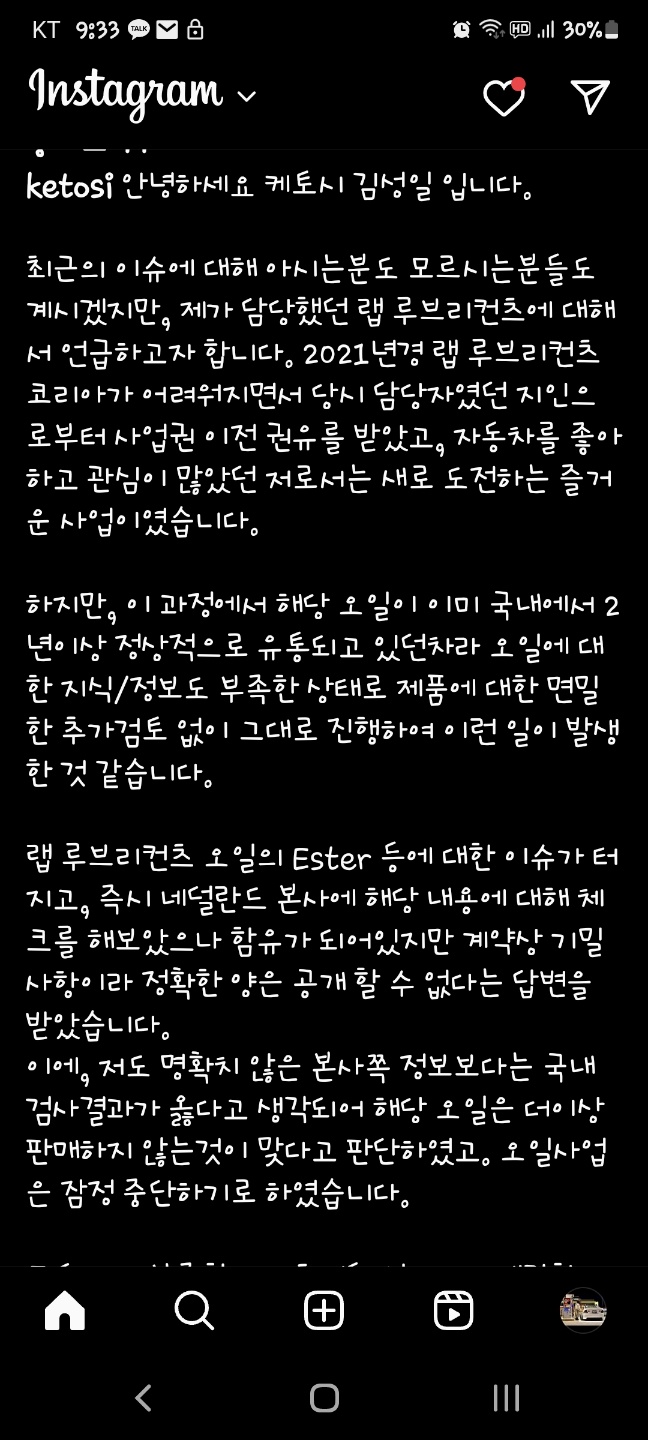 KT 9:33 TALK HD 30%
Instagram
ketosi 안녕하세요 케토시 김성일 입니다.
최근의 이슈에 대해 아시는분도 모르시는분들도
계시겠지만, 제가 담당했던 랩 루브리컨츠에 대해
서 언급하고자 합니다. 2021년경 랩 루브리컨츠
코리아가 어려워지면서 당시 담당자였던 지인으
로부터 사업권 이전 권유를 받았고, 자동차를 좋아
하고 관심이 많았던 저로서는 새로 도전하는 즐거
운 사업이였습니다.
하지만, 이 과정에서 해당 오일이 이미 국내에서 2
년이상 정상적으로 유통되고 있던차라 오일에 대
한 지식/정보도 부족한 상태로 제품에 대한 면밀
한 추가검토 없이 그대로 진행하여 이런 일이 발생
한 것 같습니다.
랩 루브리컨츠 오일의 Ester 등에 대한 이슈가 터
지고, 즉시 네덜란드 본사에 해당 내용에 대해 체
크를 해보았으나 함유가 되어있지만 계약상 기밀
사항이라 정확한 양은 공개 할 수 없다는 답변을
받았습니다.
이에, 저도 명확치 않은 본사쪽 정보보다는 국내
검사결과가 옳다고 생각되어 해당 오일은 더이상
판매하지 않는것이 맞다고 판단하였고. 오일사업
은 잠정 중단하기로 하였습니다.